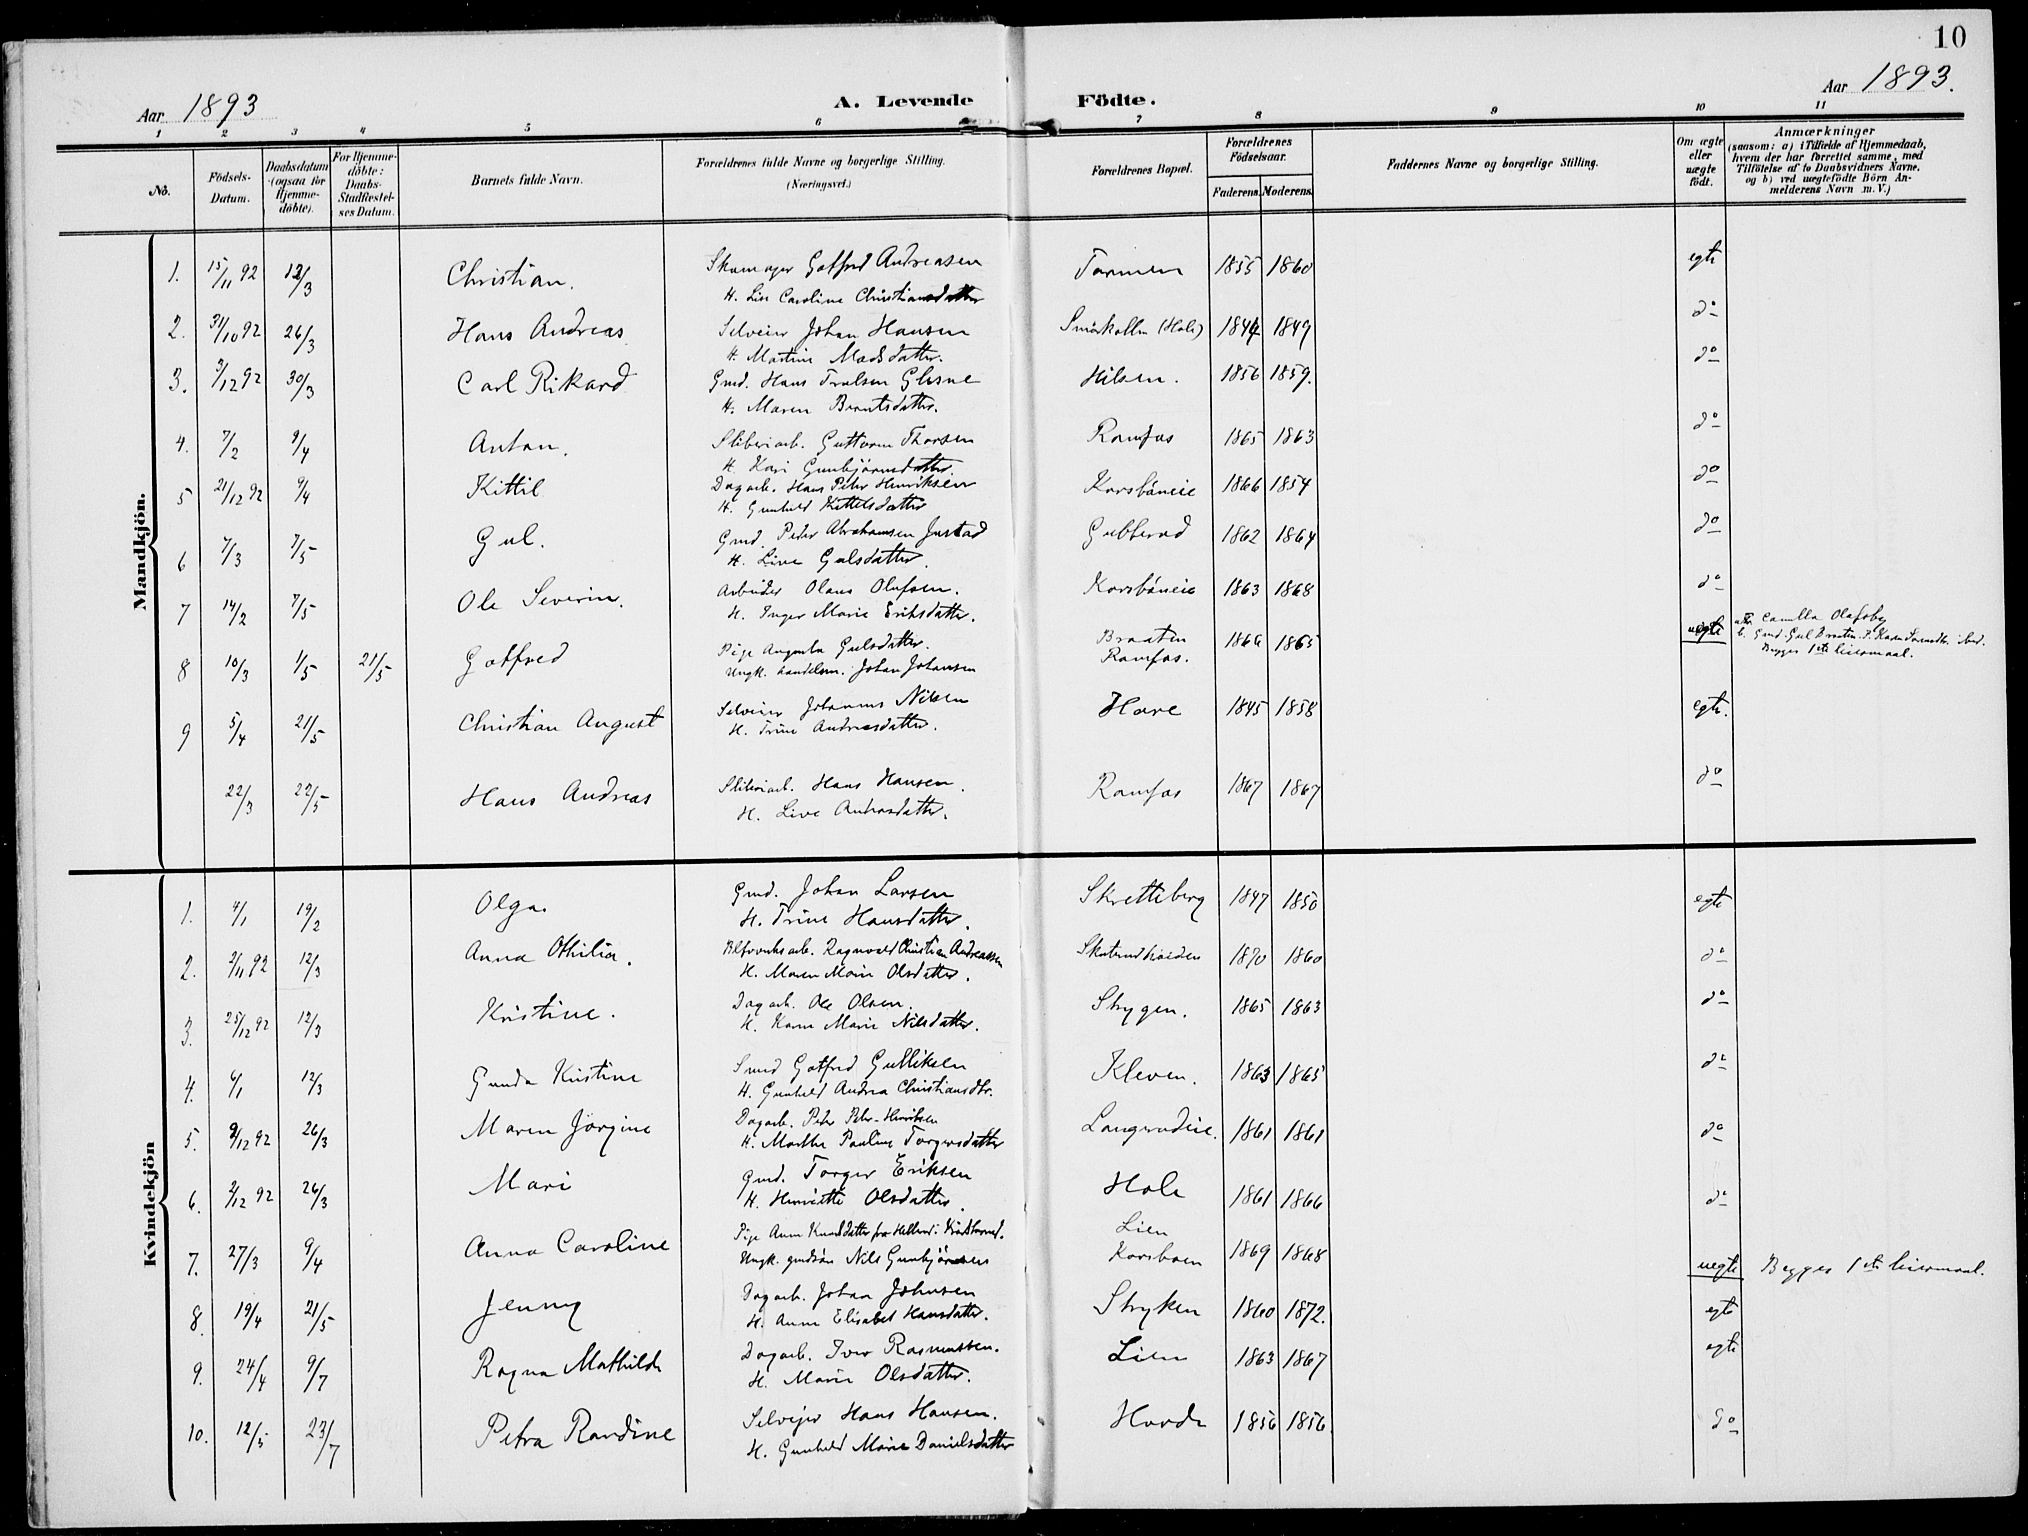 10
Aar 1893
A. Levende Födte.
Aar 1893.
1 2 3 4 5 6 7 8 9 10 11
No.
Födsels-Datum.
Daabsdatum (ogsaa for Hjemme-döbte).
For Hjemme-döbte: Daabs-Stadfæstel-ses Datum.
Barnets fulde Navn.
Forældrenes fulde Navne og borgerlige Stilling. (Næringsvei.)
Forældrenes Bopæl.
Forældrenes Födselsaar.
Faderens. Moderens.
Faddernes Navne og borgerlige Stilling.
Om ægte eller uægte födt.
Anmærkninger (saasom: a) i Tilfælde af Hjemmedaab, hvem der har forrettet samme, med Tilföielse af to Daabsvidners Navne, og b) ved uægtefödte Börn An-melderens Navn m. V.)
Mandkjön.
1. 15/11 92 12/3 Christian. Skomager Gotfred Andreasen Tormen 1855 1860 egte
H. Lise Caroline Christiansdatter
2. 31/10 92 26/3 Hans Andreas Selveier Johan Hansen (Hole) 1844 1849 do
H. Martine Madsdatter.
3. 3/12 92 30/3 Carl Rikard Gmd. Hans Trulsen Glesne Hilsen. 1856 1859. do
H. Maren Berntsdatter.
4. 7/2 9/4 Anton. Sliberiarb. Guttorm Thorsen Ramfos 1865 1863 do
H. Kari Gunbjörnsdatter.
5 21/12 92 9/4 Kittil Dagarb. Hans Peter Henriksen Korsböneie 1866 1854 do
H. Gunhild Kittelsdatter
6 7/3 7/5 Gul. Gmd. Peder Abrahamsen Justad Gubberud 1862 1864 do
H. Live Gulsdatter.
7 14/2 7/5 Ole Severin. Arbeider Olaus Olafsen. Korsböneie 1863 1868 do
H. Inger Marie Eriksdatter.
8 10/3 1/5 21/5 Gotfred Pige Augusta Gulsdatter. Braaten 1866 1865 uegte Camilla Olafsby
Ungk. handelsm. Johan Johansen Ramfos. b. Gmd. Gul Braaten
Begges 1ste leiermaal.
9 5/4 21/5 Christian August Selveier Johannes Nilsen Hove 1845 1858 egte.
H. Trine Andreasdatter.
22/3 22/5 Hans Andreas Sliberiarb. Hans Hansen. Ramfos 1867 1867 do
H. Live Andersdatter.
Kvindekjön
1. 4/1 19/2 Olga. Gmd. Johan Larsen Skretteberg 1847 1850 egte
H. Trine Hansdatter.
2. 2/11 92 12/3 Anna Othilia. Ragnvald Christian Andreassen 1870 1860 do
H. Maren Marie Olsdatter.
3. 25/12 92 12/3 Kristine. Dagarb. Ole Olsen. Strygen. 1865 1863 do
H. Karen Marie Nilsdatter.
4. 4/1 12/3 Gunda Kristine Smed Gotfred Gulliksen Kleven. 1863 1865 do
H. Gunhild Andrea Christiansdtr.
5. 9/12 92 26/3 Maren Jörgine Dagarb. Peter Peter-Henriksen Langerudeie. 1861 1861 do
H. Marthe Pauline Torgersdatter
6. 2/12 92 26/3 Mari Gmd. Torger Eriksen Hole 1861 1866 do
H. Henriette Olsdatter.
7. 27/3 9/4 Anna Caroline Pige Anne Knudsdatter fra Lien 1869 1868 uegte Begges 1ste leiermaal.
Ungk. gmdsön Nils Gunbjörnsen Korsboen
8. 19/4 21/5 Jenny Dagarb. Johan Johnsen Stryken 1860 1872. egte
H. Anne Elisabet Hansdatter.
9. 24/4 9/7 Ragna Mathilde Dagarb. Iver Rasmussen. Lien 1863 1867 egte
H. Marie Olsdatter.
10. 12/5 23/7 Petra Randine Selvejer Hans Hansen. Horde 1856 1856 do
H. Gunhild Marie Danielsdatter